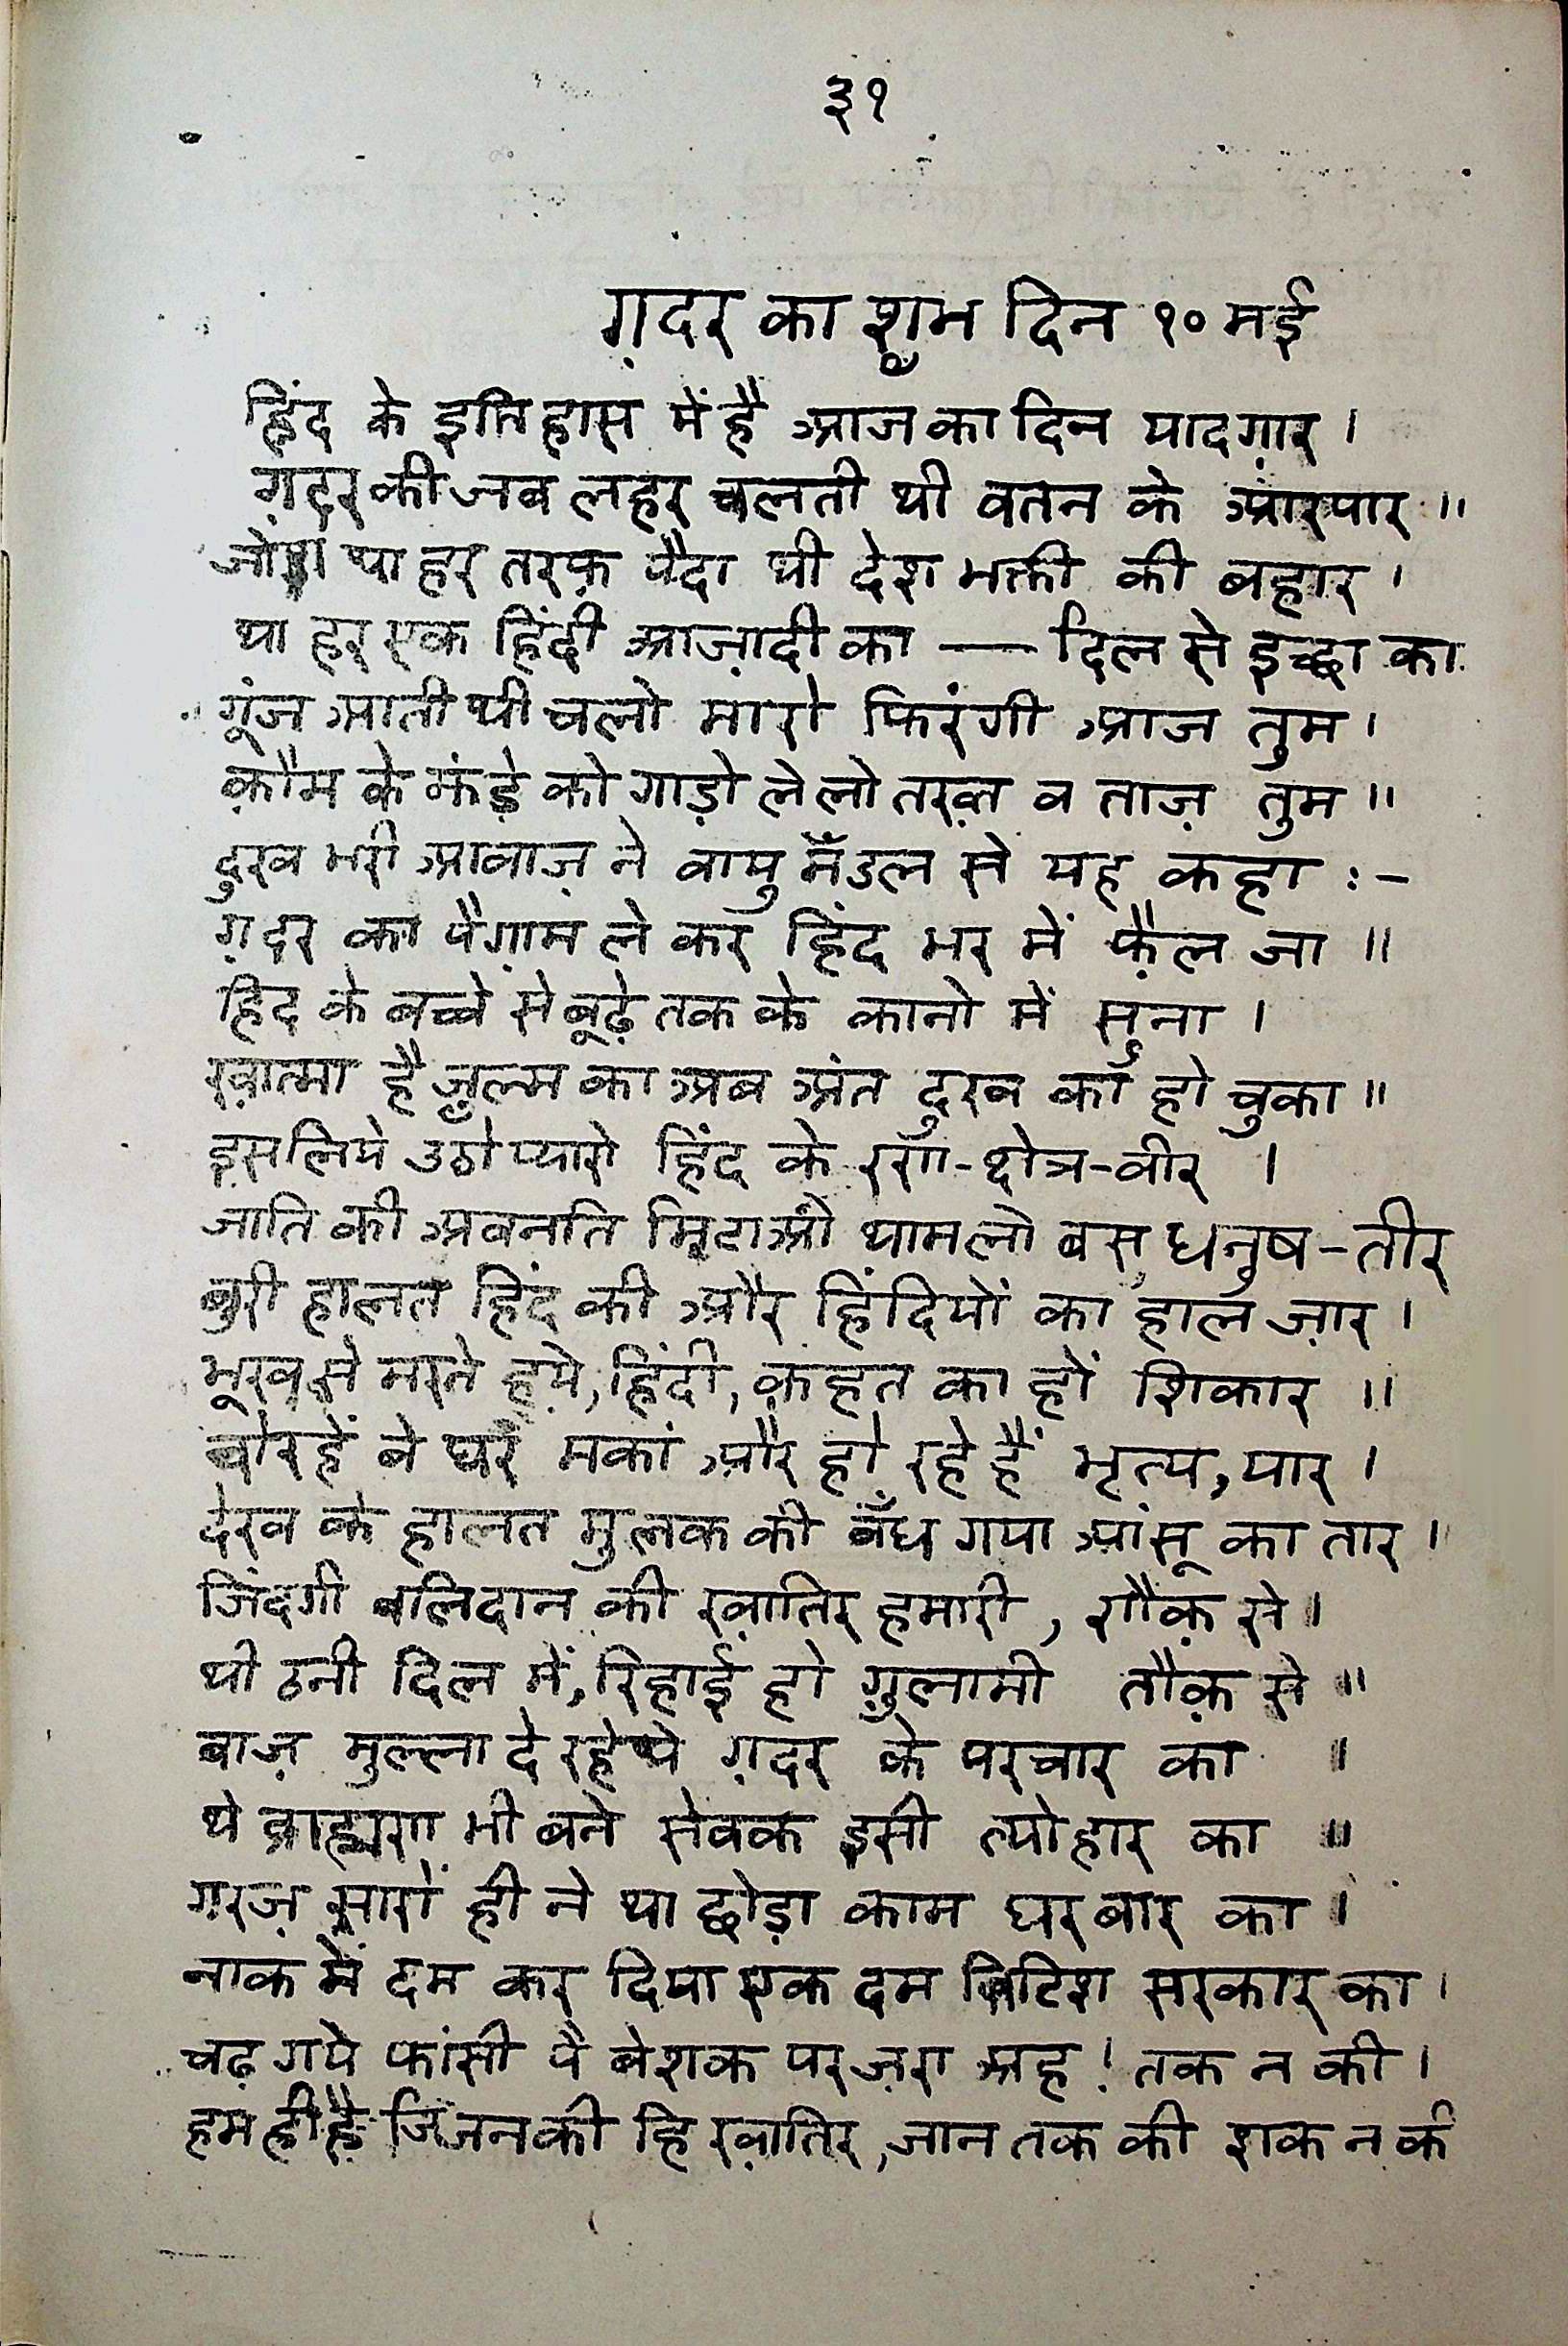 ३१
ग़दर का शुभ दिन १० मई
हिंद के इतिहास में है आज का दिन यादग़ार ।
ग़दर की जब लहर चलती थी वतन के आरपार ॥
जोश था हर तरफ़ पैदा थी देश भक्ती की बहार ।
था हर एक हिंदी आज़ादी का — दिल से इच्छा का
गूंज आती थी चलो मारो फिरंगी आज तुम ।
क़ौम के झंड़े को गाड़ो लेलो तख़्त व ताज़ तुम ॥
दुख भरी आवाज़ ने वायु मँडल से यह कहा :-
ग़दर का पैग़ाम ले कर हिंद भर में फ़ैल जा ॥
हिंद के बच्चे से बूढ़े तक के कानो में सुना ।
ख़ात्मा है ज़ुल्म का अब अंत दुख का हो चुका ॥
इसलिये उठो प्यारो हिंद के रण-क्षेत्र-वीर ।
जाति की अवनति मिटाओ थामलो बस धनुष-तीर
बुरी हालत हिंद की और हिंदियों का हाल ज़ार ।
भूख से मरते हुये, हिंदी, क़हत का हों शिकार ॥
हें बे घर मकां और हो रहे हैं भृत्य, यार ।
देख के हालत मुलक की बँध गया आंसू का तार ॥
जिंदगी बलिदान की ख़ातिर हमारी, शौक़ से ।
थी ठनी दिल में, रिहाई हो ग़ुलामी तौक़ से ॥
बाज़ मुल्ला दे रहे थे ग़दर के परचार का ॥
थे ब्राह्मण भी बने सेवक इसी त्योहार का ॥
गरज़ सारों ही ने था छोड़ा काम घर बार का ।
नाक में दम कर दिया एक दम ब्रिटिश सरकार का ।
चढ़ गये फांसी पै बेशक पर ज़रा अह ! तक न की ।
हम ही हैं जिनकी हि ख़ातिर, जान तक की शक न की